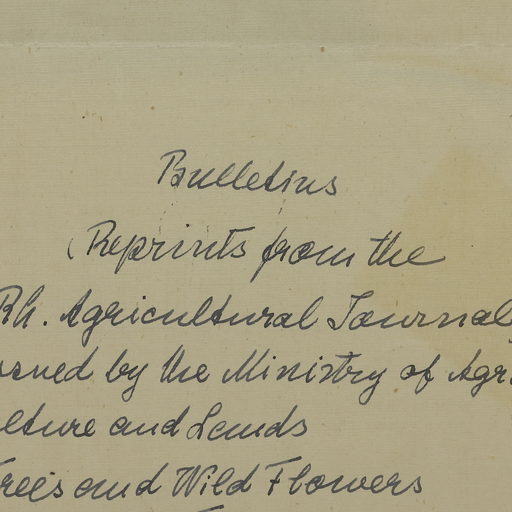 Bulletins
(Reprints from the
Rh. Agricultural Journal,
ssued by the Ministry of Agri
lture and Lands
Trees and Wild Flowers